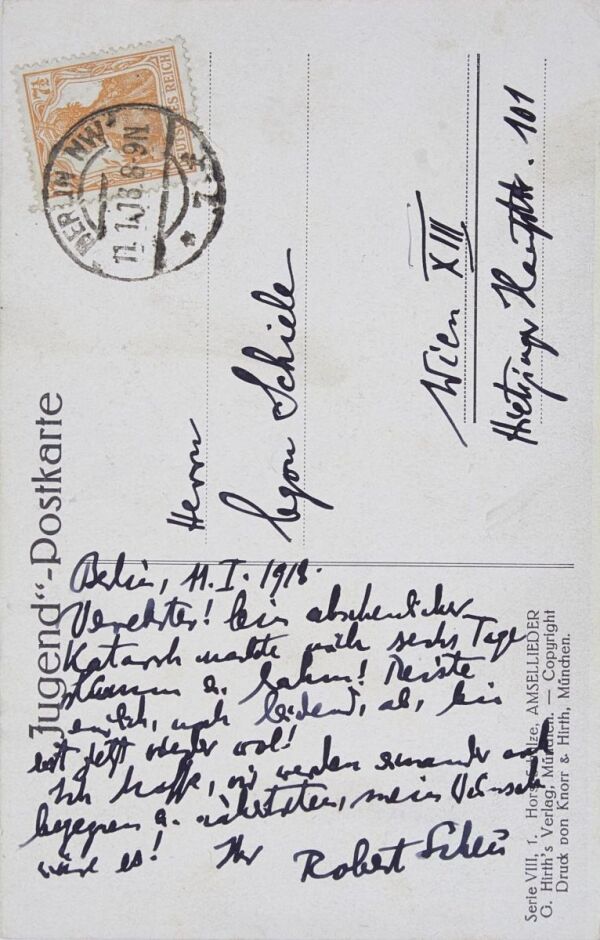 7½
DEUTSCHES REICH
BERLIN NW
11.1.18.8-9N
* 7 *
„Jugend“-Postkarte
Herrn
Egon Schiele
Wien XIII
Hietzinger Hauptstr. 101
Berlin, 11.I.1918.
Verehrter! Ein abscheulicher
Katarrh machte mich sechs Tage
stumm u. lahm! Reiste
endlich, noch leidend, ab, bin
erst jetzt wieder wol!
Ich hoffe, wir werden einander
begegnen u. mein Wunsch
wäre es! Ihr Robert Scheu
Serie VIII, 1. Horst-Schulze, AMSELLIEDER
G. Hirth's Verlag, München. — Copyright
Druck von Knorr & Hirth, München.